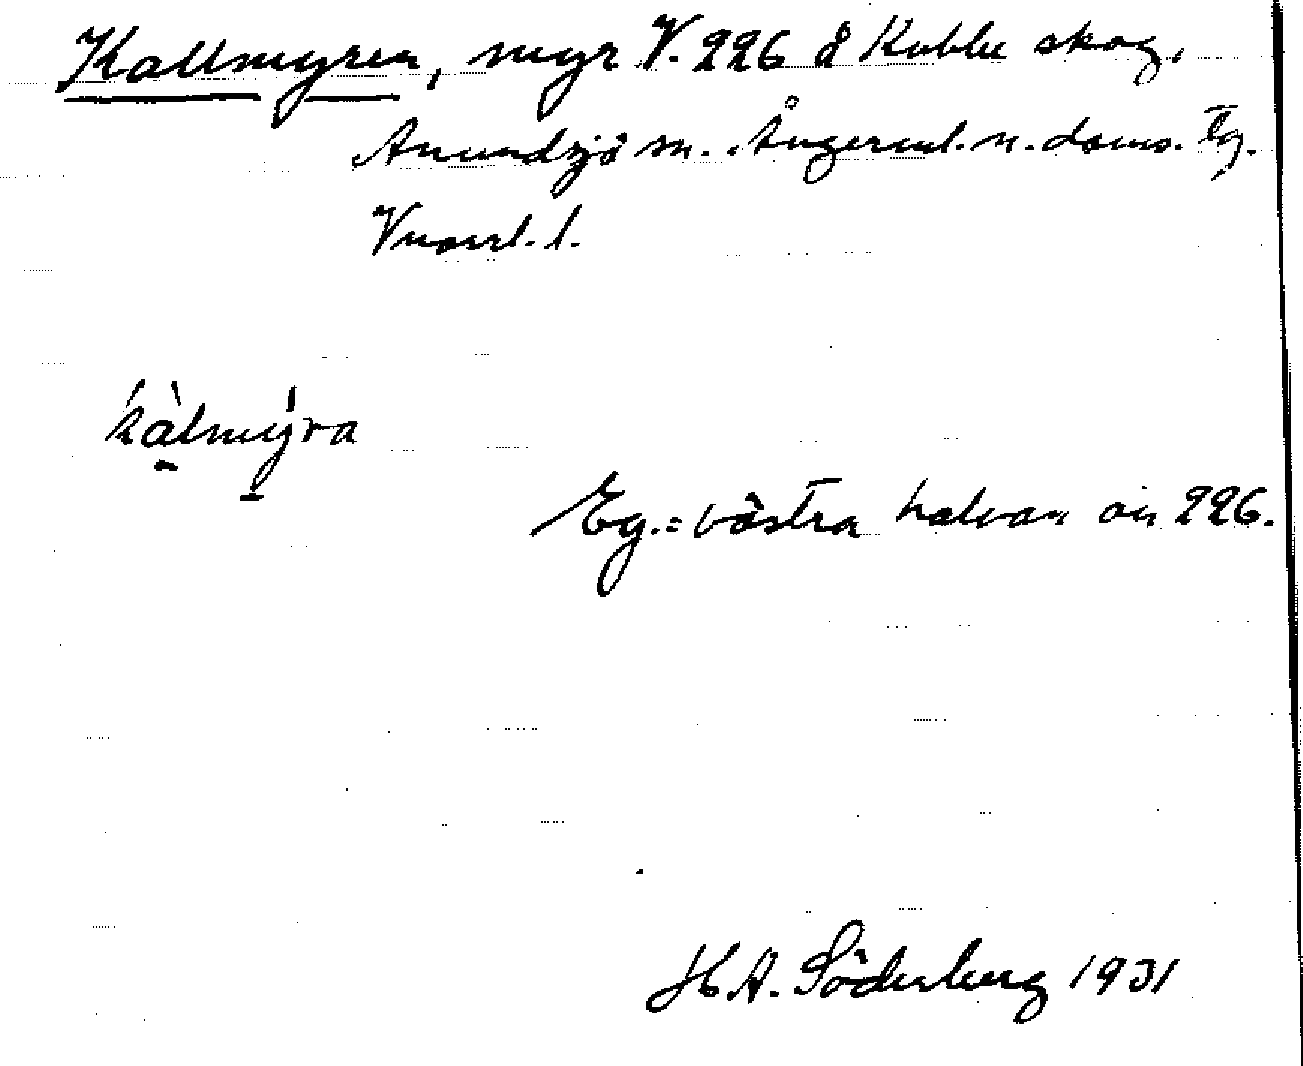 Kallmyren, myr V. 226 å Kubbe skog,
Anundsjö sn. Ångerml. n. doms. tg.
Vnorrl. l.
kàlmýra
Eg.: västra halvan av 226.
H.A. Söderberg 1931